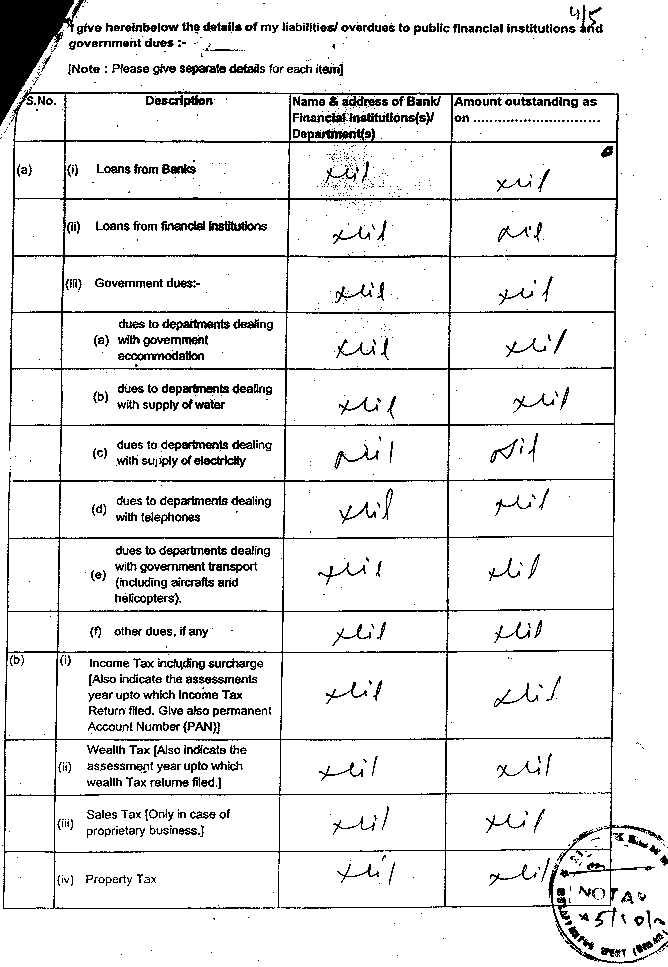 4/5
I give hereinbelow the details of my liabilities/ overdues to public financial institutions and
government dues :-
[Note : Please give separate details for each item]
S.No. Description Name & address of Bank/ Financial Institutions(s)/ Department(s) Amount outstanding as on ..............................
(a) (i) Loans from Banks Nil Nil
(ii) Loans from financial institutions Nil Nil
(iii) Government dues:- Nil Nil
(a) dues to departments dealing
with government
accommodation Nil Nil
(b) dues to departments dealing
with supply of water Nil Nil
(c) dues to departments dealing
with supply of electricity Nil Nil
(d) dues to departments dealing
with telephones Nil Nil
(e) dues to departments dealing
with government transport
(including aircrafts and
helicopters). Nil Nil
(f) other dues, if any Nil Nil
(b) (i) Income Tax including surcharge
[Also indicate the assessments
year upto which Income Tax
Return filed. Give also permanent
Account Number (PAN)] Nil Nil
(ii) Wealth Tax [Also indicate the
assessment year upto which
wealth Tax returne filed.] Nil Nil
(iii) Sales Tax [Only in case of
proprietary business.] Nil Nil
(iv) Property Tax Nil Nil
NOTA